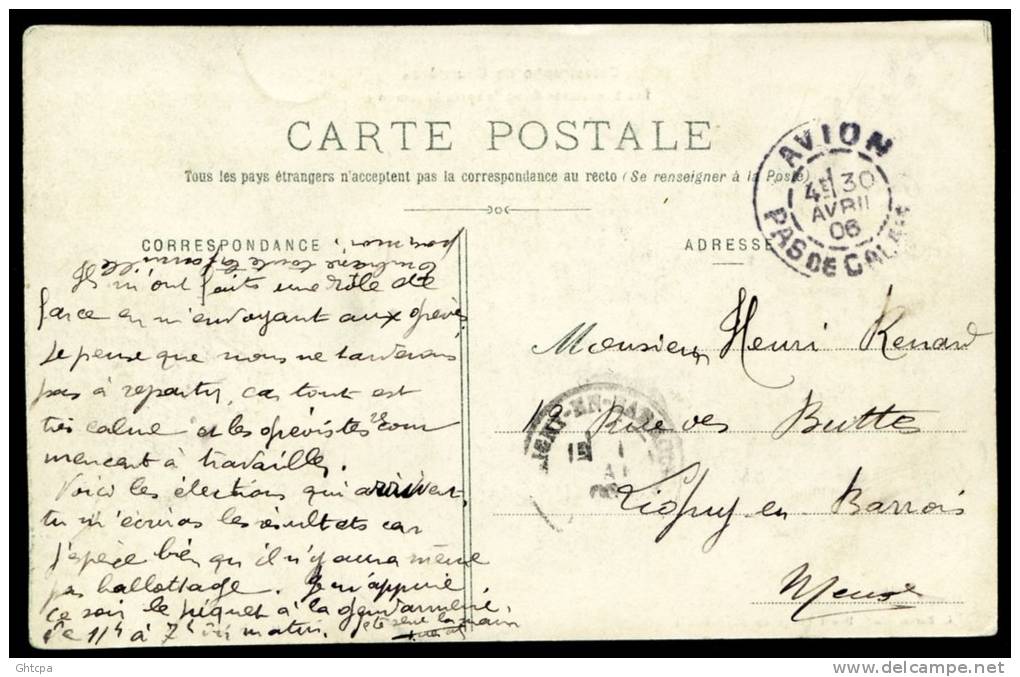 CARTE POSTALE
Tous les pays étrangers n'acceptent pas la correspondance au recto (Se renseigner à la Poste)
CORRESPONDANCE
pour moi
toute la famille
Ils m'ont faits une rôle de
farce en m'envoyant aux grèves.
Je pense que nous ne tarderons
pas à repartir, car tout est
très calme et les grévistes recom
mencent à travailler.
Voici les élections qui arrivent,
tu m'écriras les résultats car
j'espère bien qu'il n'y aura même
pas ballottage. Je
ce soir le piquet à la gendarmerie,
de 11h à 7h du matin.
la main
ADRESSE
AVION
4E 30
AVRIL
06
PAS DE CALAIS
Monsieur Henri Renard
Rue des Butte
Ligny en Barrois
Meuse
Ghtcpa
delcampe.net